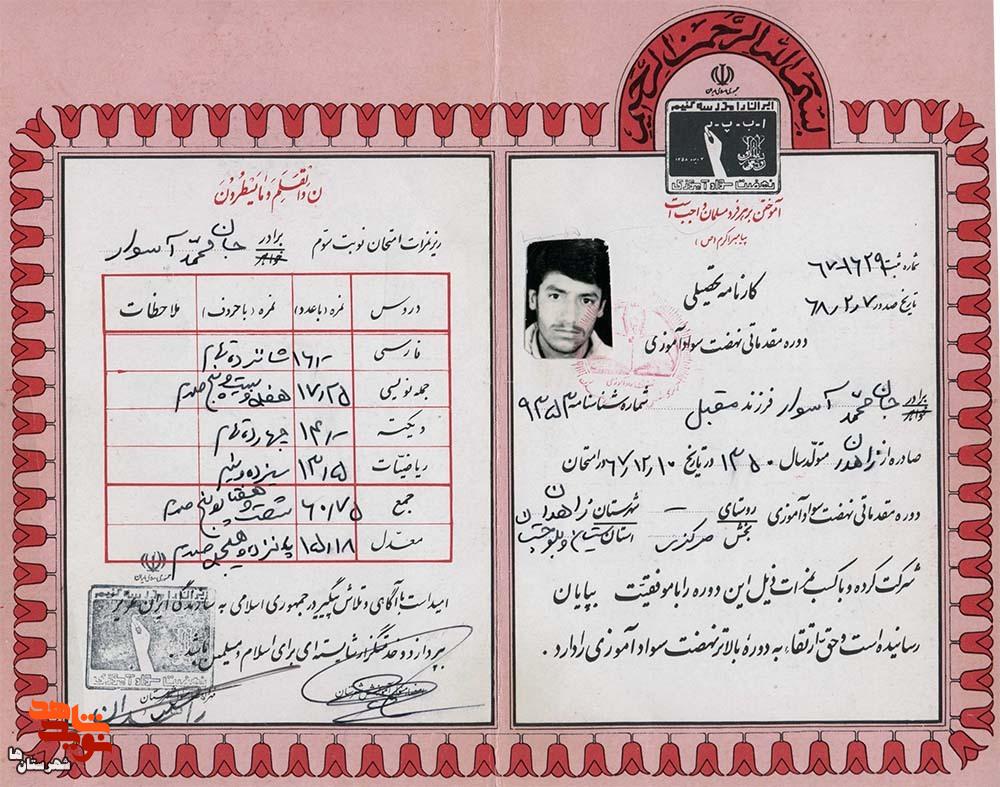 بسم الله الرحمن الرحیم
جمهوری اسلامی ایران
ایران را مدرسه کنیم
ا - ب - پ - ـر
نهضت سواد آموزی
آموختن بر هر فرد مسلمان واجب است
پیامبر اکرم (ص)
شماره ثبت ۶۷-۱۶۲۹
تاریخ صدور ۶۸/۲/۷
کارنامه تحصیلی
دوره مقدماتی نهضت سوادآموزی
برادر خواهر جان محمد آسوار فرزند مقبل شماره شناسنامه ۹۳۵۳
صادره از زاهدان متولد سال ۱۳۵۰ در تاریخ ۶۷/۱۲/۱۰ در امتحان
دوره مقدماتی نهضت سوادآموزی روستای — شهرستان زاهدان
بخش مرکزی استان سیستان و بلوچستان
شرکت کرده و با کسب نمرات ذیل این دوره را با موفقیت بپایان
رسانیده است و حق ارتقاء به دوره بالاتر نهضت سوادآموزی را دارد .
ن وَالْقَلَمِ وَ مَا یَسْطُرُونَ
ریز نمرات امتحان نوبت سوم برادر خواهر جان محمد آسوار
دروس نمره (با عدد) نمره (با حروف) ملاحظات
فارسی ۱۶/- شانزده تمام
جمله نویسی ۱۷/۲۵ هفده و بیست و پنج صدم
دیکته ۱۴/- چهارده تمام
ریاضیات ۱۳/۵ سیزده و نیم
جمع ۶۰/۷۵ شصت و هفتاد و پنج صدم
معدل ۱۵/۱۸ پانزده و هیجده صدم
جمهوری اسلامی ایران
امید است با آگاهی و تلاش پیگیر در جمهوری اسلامی به سازندگی ایران عزیز
بپردازد و خدمتگزار شایسته ای برای اسلام و مسلمین باشد.
ایران را مدرسه کنیم
نهضت سواد آموزی
زاهدان
نوید شاهد
شهرستان‌ها